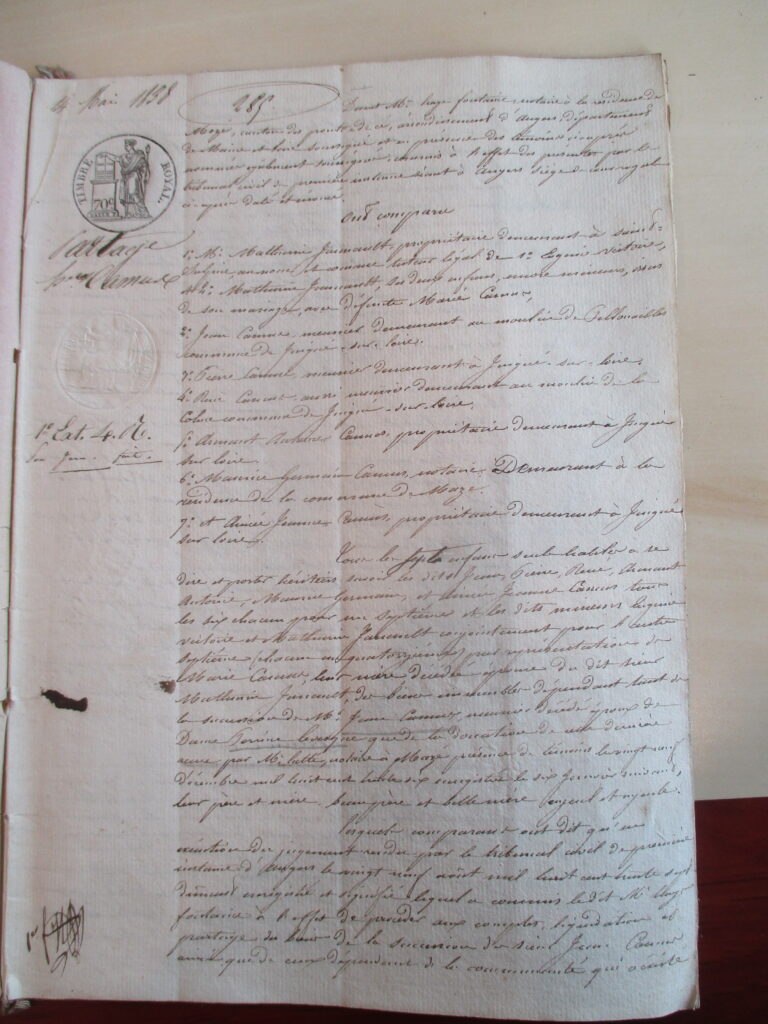 4 Mai 1838
285.
TIMBRE ROYAL.
70c
Partage
Camus
1er Ext. 4. R.
Devant Me fontaine, notaire à la résidence de
Mozé, canton des ponts de cé, arrondissement d'Angers, département
de Maine et Loire soussigné et en présence des témoins ci après
nommés également soussignés, commis à l'effet des présentes par le
tribunal civil de première instance séant à Angers
ci après daté et énoncé.
Ont comparu
1o Mr Mathurin Janneault, propriétaire demeurant à
au nom et comme tuteur légal de 1o Eugénie Victoire,
et 2o Mathurin Janneault, ses deux enfans, encore mineurs, issus
de son mariage avec défunte Marie Camus,
2o Jean Camus, meunier demeurant au moulin de
commune de Juigné-sur-loire.
3o Pierre Camus, meunier demeurant à Juigné-sur-loire,
4o René Camus aussi meunier demeurant au moulin de la
commune de Juigné-sur-loire.
5o Armand Antoine Camus, propriétaire demeurant à Juigné
sur loire.
6o Maurice Germain Camus, notaire, Demeurant à la
résidence de la commune de Mazé.
7o et Aimée Jeanne Camus, propriétaire demeurant à Juigné
sur loire.
Tous les enfans seuls habiles à se
dire et porter héritiers savoir les dits Jean, Pierre, René, Armand
Antoine, Maurice Germain, et Aimée Jeanne Camus tous
les six chacun pour un septième et les dits mineurs Eugénie
victoire et Mathurin Janneault conjointement pour l'autre
septième (chacun un quatorzième) par représentation de
Marie Camus, leur mère décédée épouse du dit sieur
Mathurin Janneault, des biens immeubles dépendant tant de
la succession de Mr Jean Camus, meunier décédé époux de
Dame Perrine Levesque que de la donation de cette dernière
reçue par Me notaire à Mozé présence de témoins le vingt neuf
décembre mil huit cent trente six enregistrée le six Janvier suivant,
leur père et mère, beau père et belle mère, ayeul et ayeule.
Lesquels comparans ont dit qu'en
exécution du jugement rendu par le tribunal civil de première
instance d'Angers le vingt neuf août mil huit cent trente sept
dûment enregistré et signifié lequel a commis le dit Me
fontaine à l'effet de procéder aux comptes, liquidation et
partage des biens de la succession du sieur Jean Camus
ainsi que de ceux dépendant de la communauté qui a existé